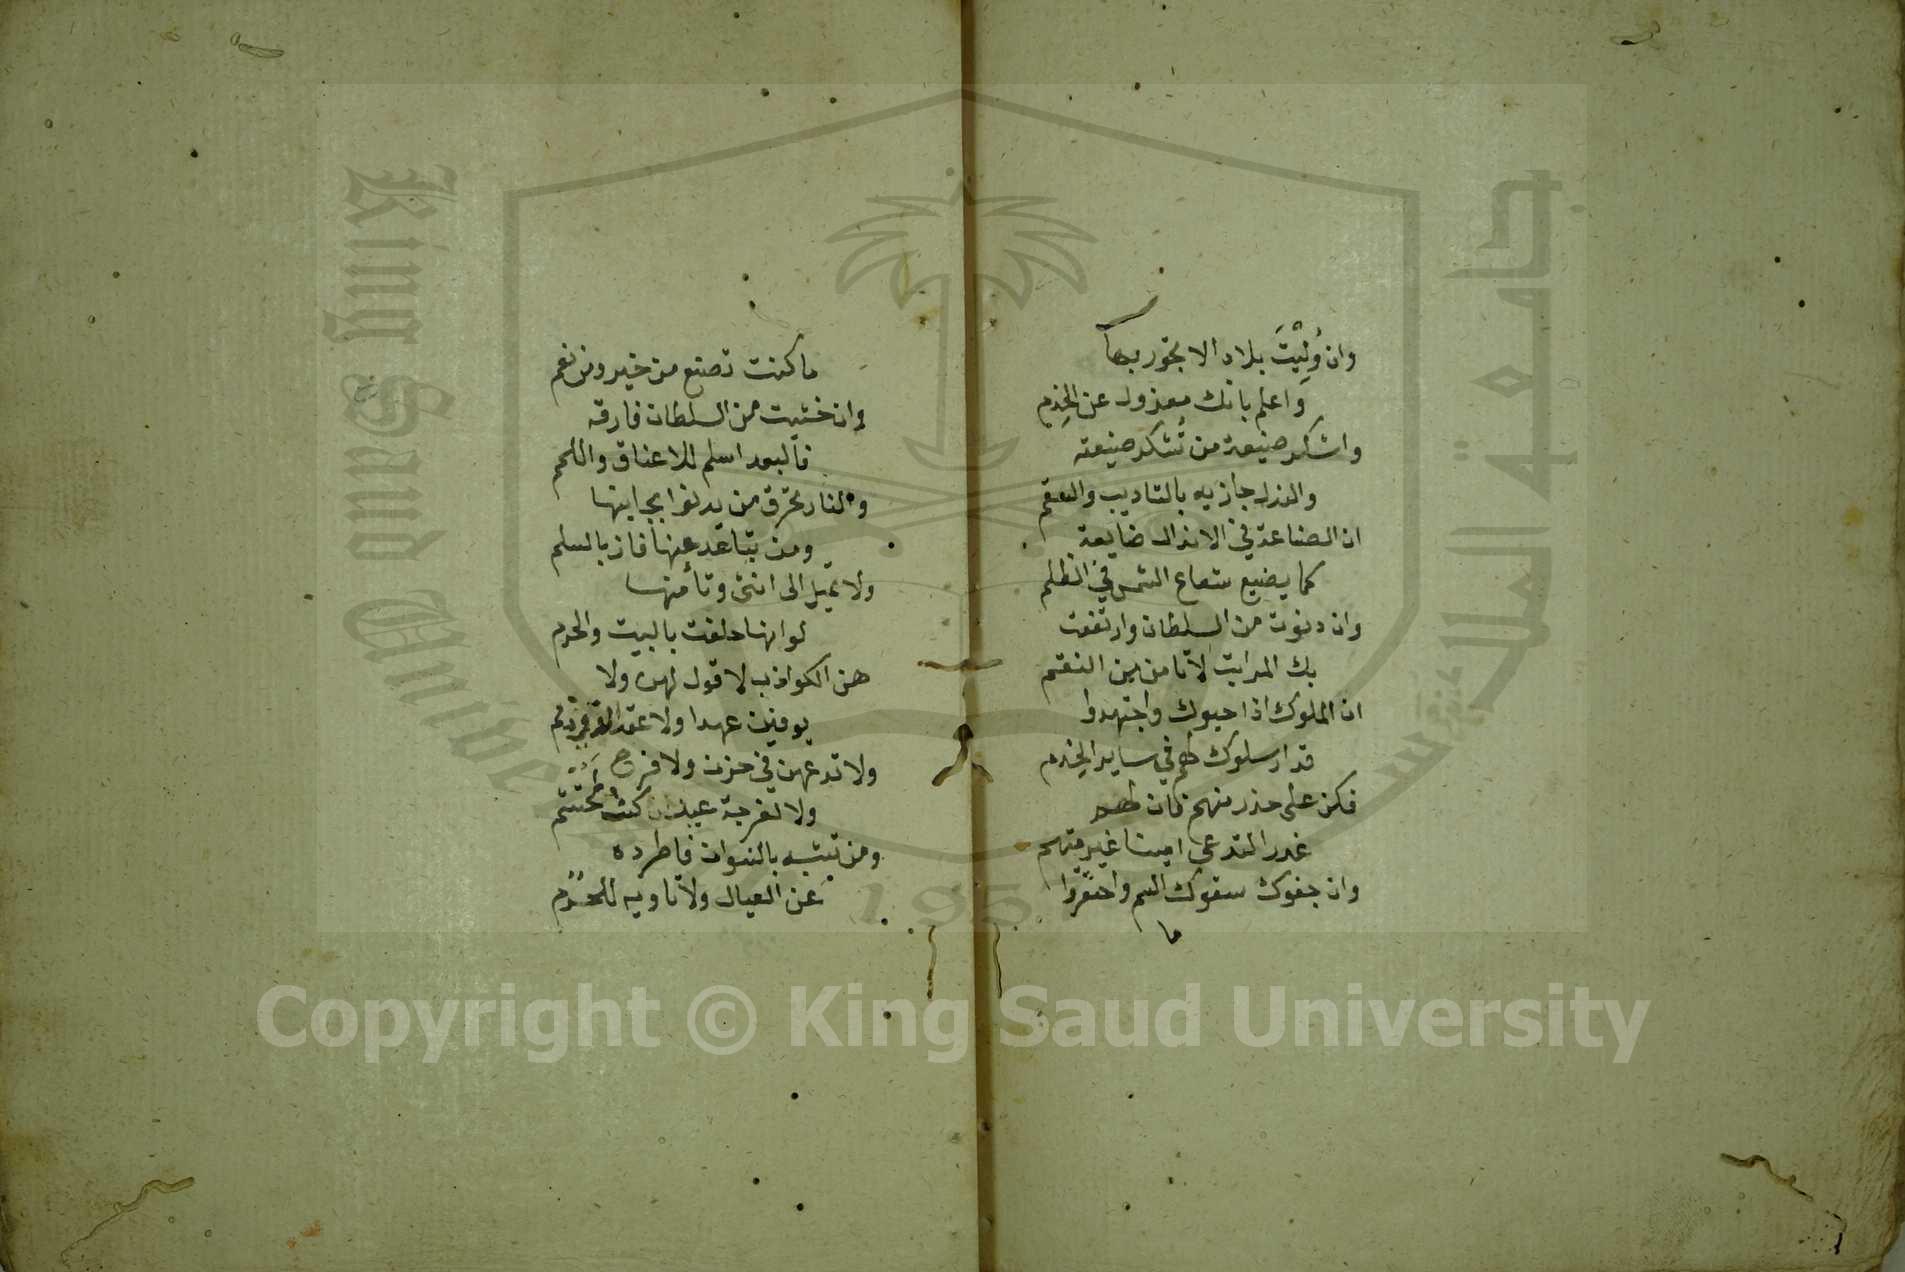 وان وُلِيْتَ بلادا لا تجور بها
واعلم بانك معزول عن الخدم
واشكر صنيعة من تُشكر صنيعته
والنذل جازيه بالتاديب والنقم
ان الصناعة في الانذال ضايعة
كما يضيع شعاع الشمس في الظلم
وان دنوت من السلطان وارتفعت
بك المراتب لا تامن من النقم
ان الملوك اذا حبوك واجتهدوا
قد ارسلوك لهم في ساير الخدم
فكن على حذر منهم فان لهم
غدر المتدعي امينا غير متهم
وان جفوك سقوك السم واحتقروا
ما
ما كنت تصنع من خير ومن نعم
وان خشيت من السلطان فارقه
فالبعد اسلم للاعناق واللمم
والنار تحرق من يدنوا بجانبها
ومن تباعد عنها فاز بالسلم
ولا تميل الى انثى وتأمنها
لو انها حلفت بالبيت والحرم
هن الكواذب لا قول لهن ولا
يوفين عهدا ولا عقد
ولا تدعهن في حزن ولا فرح
ولا لفرجة عيد ان كنت محتشم
ومن تشبه بالنسوان فاطرده
عن العيال ولا تاويه للحرم
Copyright © King Saud University
King Saud University
جامعة الملك سعود
195